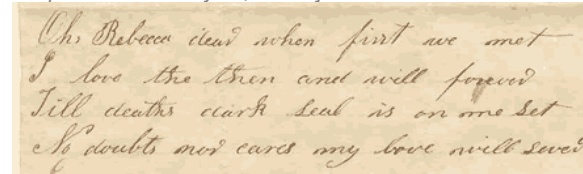 Oh, Rebecca dear when first we met
I love the then and will forever
Till deaths dark seal is on me set
No doubts nor cares my love will sever